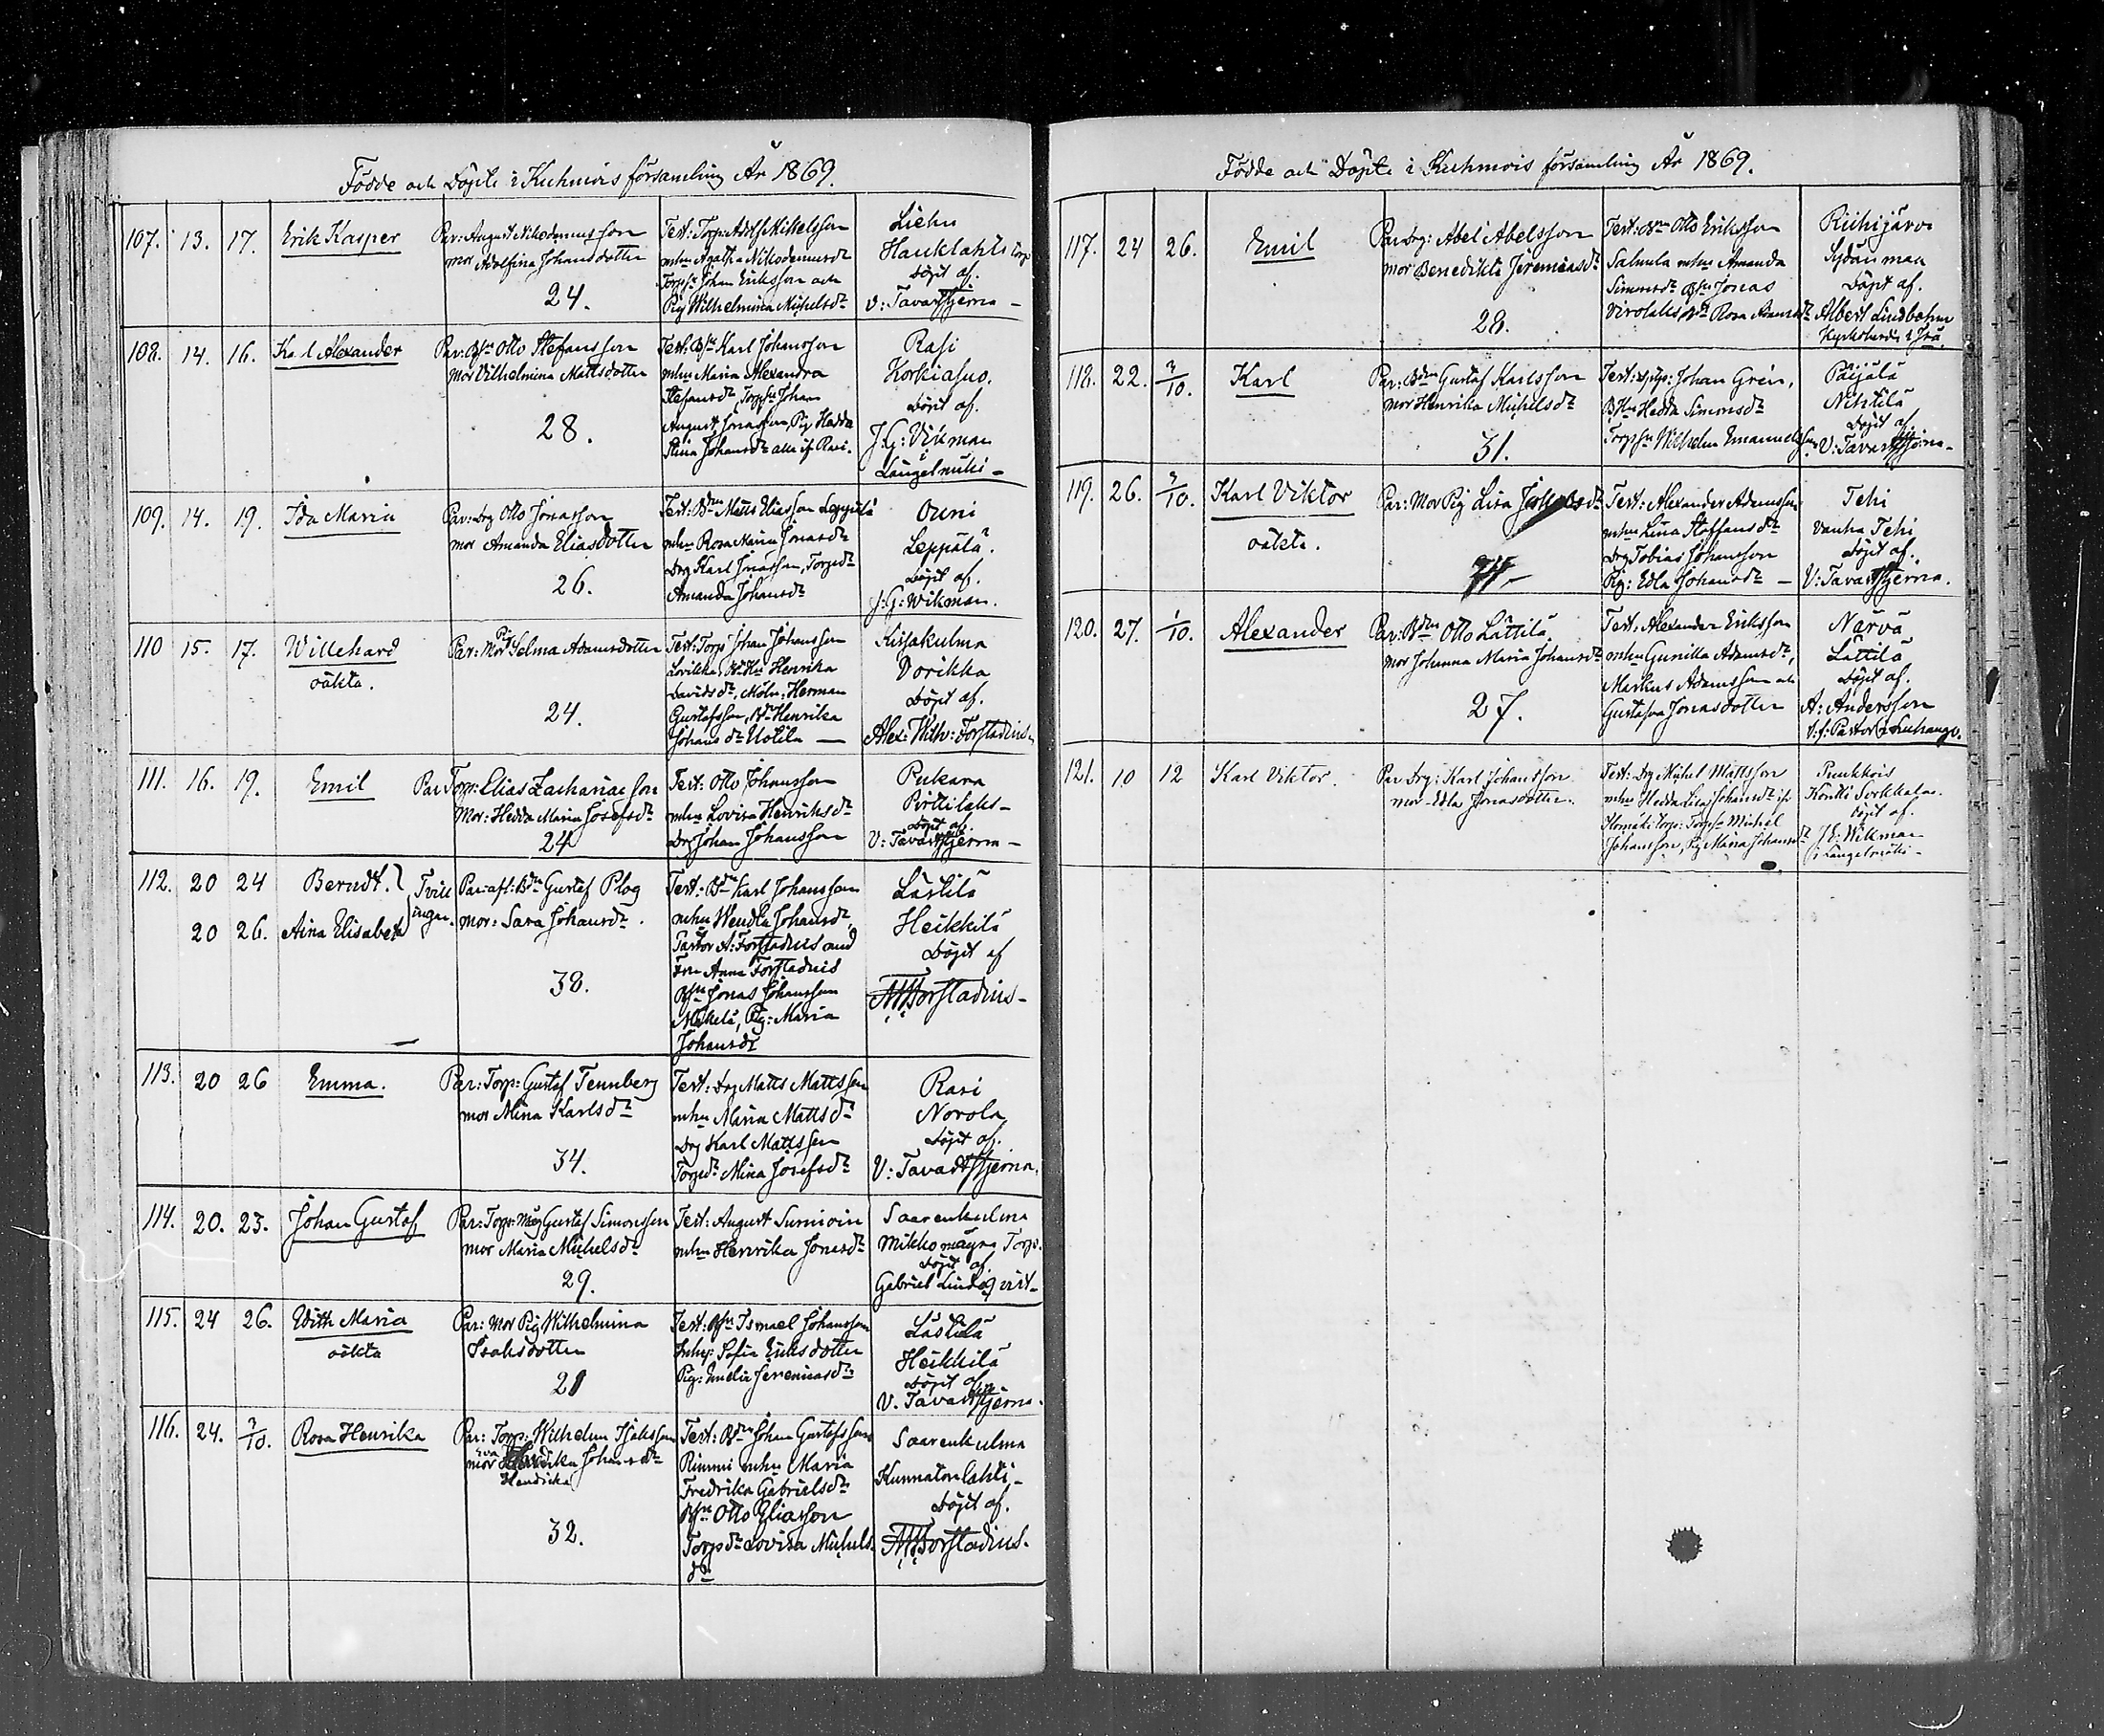 Födde och Döpte i Kuhmois församling År 1869.
107. 13. 17. Erik Kasper
Par: August Nikodemusson
mor Adolfina Johansdotter
24.
Test: Torp: Adolf Mikkelsson
mhu Agatha Nikodemusdr
Torpsn Johan Eriksson och
Pig Wilhelmina Michelsdr
Liehu
Hauklahti torp
döpt af.
V: Tavaststjerna –
108. 14. 16. Karl Alexander
Par: Bsn Otto Stefansson
mor Vilhelmina Mattsdotter
28.
Test: Bsn Karl Johansson
mhu Maria Alexandra
Stefansdr, Torpsn Johan
August Jonasson, Pig Hedda
Stina Johansdr alla if. Rasi.
Rasi
Korkiasuo.
döpt af.
J. G: Vikman
i Längelmäki –
109. 14. 19. Ida Maria
Par: Drg Otto Jonasson
mor Amanda Eliasdotter
26.
Test: Bdn Matts Eliasson Leppälä
mhu Rosa Maria Jonasdr
Drg Karl Jonasson, Torpdr
Amanda Johansdr
Ouni
Leppälä.
döpt af.
J: G: Wikman.
110 15. 17. Willehard
oäkta.
Par: Mor Pig Selma Adamsdotter
24.
Test: Torp Johan Johansson
Henrika
Davidsdr, Möln: Herman
Gustafsson, Bdr Henrika
Johansdr Uotila —
Kissakulma
Vorikka
döpt af.
Alex: Wilh: Forstadius.
111. 16. 19. Emil
Par Torp: Elias Zachariaesson
Mor: Hedda Maria Josefsdr
24
Test: Otto Johansson
mhu Lovisa Henriksdr
Drg Johan Johansson
Pukara
Pirttilaks –
döpt af.
V: Tavaststjerna –
112. 20 24 Berndt.
20 26. Aina Elisabet
Tvill
ingar.
Par: afl: Bdn Gustaf Plog
mor: Sara Johansdr.
38.
Test: Bdn Karl Johansson
mhu Wendla Johansdr,
Pastor A: Forstadius and
Fru Anna Forstadius
Bsn Jonas Johansson
Mikkelä, Pig: Maria
Johansdr
Lästilä
Heikkilä
döpt af
A. W. Forstadius –
113. 20 26 Emma.
Par: Torp: Gustaf Tennberg
mor Mina Karlsdr
34.
Test: Drg Matts Mattsson
mhu Maria Mattsdr
Drg Karl Mattsson
Torpdr Mina Josefsdr
Rasi
Norola
döpt af.
V: Tavaststjerna.
114. 20. 23. Johan Gustaf
Par: Torp: Måg Gustaf Simonsson
mor Maria Michelsdr
29.
Test: August Sumioin
mhu Henrika Jonasdr
Saarenkulma
Mikkomäyra Torp.
döpt af
Gabriel Lindqvist –
115. 24 26. Edith Maria
oäkta
Par: Mor Pig Wilhelmina
Isaksdotter
21
Test: Bsn Ismael Johansson
Inhy: Sofia Eriksdotter
Pig: Amelia Jeremiasdr
Lästilä
Heikkilä
döpt af
V. Tavaststjerna.
116. 24. 3/10. Rosa Henrika
Par: Torp: Wilhelm Isaksson
mor Eva Johansdr
Hendrika
32.
Test: Bdn Johan Gustafsson
Rimmi mhu Maria
Fredrika Gabrielsdr
Bsn Otto Eliasson
Torpdr Lovisa Michels-
dr
Saarenkulma
Kunnatonlahti –
döpt af.
A. W. Forstadius.
Födde och Döpte i Kuhmois församling År 1869.
117. 24 26. Emil
Par Drg: Abel Abelsson
mor Benedikta Jeremiasdr
28.
Test: Bdn Otto Eriksson
Salmela mhu Amanda
Simonsdr Bsn Jonas
Bdr Rosa Adamsdr
Riihijärvi
Sydänmaa
döpt af.
Albert Lindbohm
Kyrkoherde i
118. 22. 3/10. Karl
Par: Bdn Gustaf Karlsson
mor Henrika Michelsdr
31.
Test: Johan Grén,
Hedda Simonsdr
Torpsn Wilhelm Emanuelsson
Päijälä
Nikkilä
döpt af.
V: Tavaststjerna –
119. 26. 3/10. Karl Viktor
oäkta.
Par: Mor Pig Lisa
Test: Alexander Adamsson
mhu Lina Staffansdr
Drg Tobias Johansson
Pig: Edla Johansdr —
Tehi
vanha Tehi
döpt af.
V: Tavaststjerna.
120. 27. 1/10. Alexander
Par: Bdn Otto Lättilä.
mor Johanna Maria Johansdr
27.
Test: Alexander Eriksson
mhu Gunilla Adamsdr,
Markus Adamsson och
Gustafva Jonasdotter
Närvä
Lättilä
döpt af.
A: Andersson
V: f: Pastor i Luhango.
121. 10 12 Karl Viktor.
Par Drg: Karl Johansson
mor Edla Jonasdotter.
Test: Drg Michel Mattsson
mhu Hedda Lisa Johansdr if.
torp: Torpsn Michel
Johansson, Pig Maria Johansdr
Puukkois
döpt af.
J. G: Wikman
i Längelmäki –